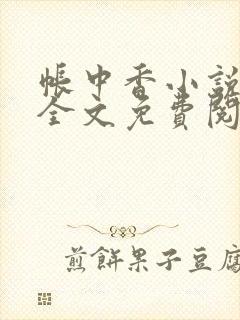 帳中香小說
全文免費閱
煎餅果子豆腐